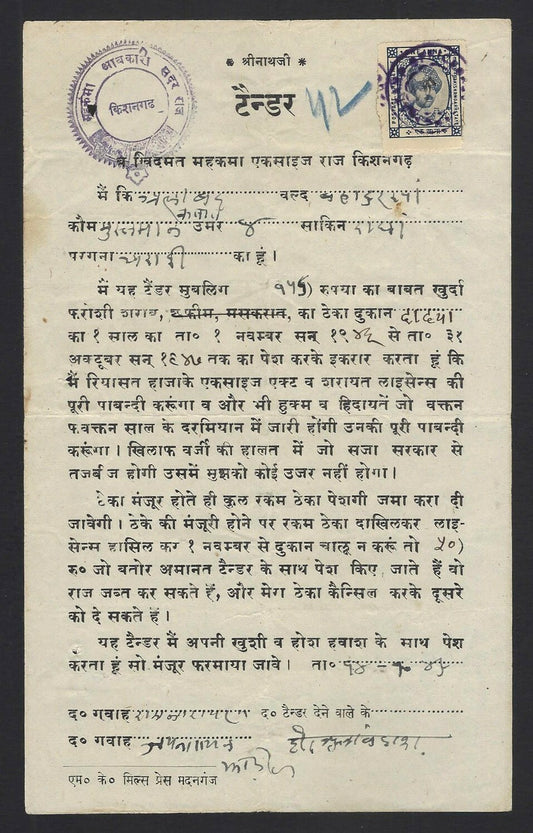 महकमा आबकारी सदर राज
किशनगढ़
* श्रीनाथजी *
टैन्डर ५८
ब खिदमत महकमा एकसाइज राज किशनगढ़
मैं कि वल्द
कौम मुसलमान उमर साकिन
परगना अराई का हूं ।
मैं यह टैंडर मुबलिग ) रुपया का बाबत खुर्दा
फरोशी शराब, अफीम, मसकरात, का ठेका दुकान
का १ साल का ता० १ नवम्बर सन् १९४६ से ता० ३१
अक्टूबर सन् १९४७ तक का पेश करके इकरार करता हूं कि
मैं रियासत हाजाके एकसाइज एक्ट व शरायत लाइसेन्स की
पूरी पाबन्दी करूंगा व और भी हुक्म व हिदायतें जो वक्तन
फ़वक्तन साल के दरमियान में जारी होंगी उनकी पूरी पाबन्दी
करूंगा । खिलाफ वर्जी की हालत में जो सजा सरकार से
तजर्बज होगी उसमें मुझको कोई उजर नहीं होगा ।
ठेका मंजूर होते ही कुल रकम ठेका पेशगी जमा करा दी
जावेगी । ठेके की मंजूरी होने पर रकम ठेका दाखिलकर लाइ-
सेन्स हासिल कर १ नवम्बर से दुकान चालू न करूं तो ५०)
रु० जो बतोर अमानत टैन्डर के साथ पेश किए जाते हैं वो
राज जब्त कर सकते हैं, और मेरा ठेका कैन्सिल करके दूसरे
को दे सकते हैं ।
यह टैन्डर मैं अपनी खुशी व होश हवाश के साथ पेश
करता हूं सो मंजूर फरमाया जावे । ता०
द० गवाह रामनारायण द० टैन्डर देने वाले के
द० गवाह
एम० के० मिल्स प्रेस मदनगंज